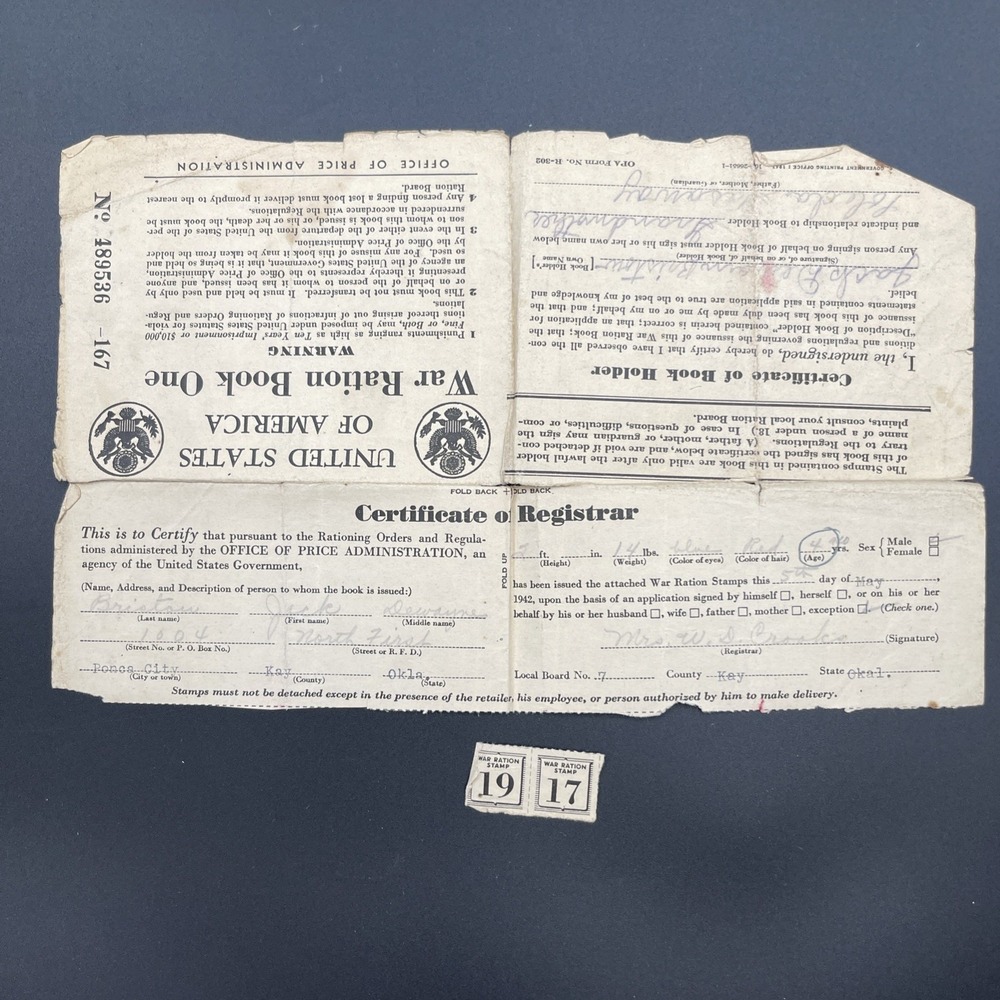 UNITED STATES
OF AMERICA
War Ration Book One
WARNING
1 Punishments ranging as high as Ten Years' Imprisonment or $10,000
Fine, or Both, may be imposed under United States Statutes for viola-
tions thereof arising out of infractions of Rationing Orders and Regu-
lations.
2 This book must not be transferred. It must be held and used only by
or on behalf of the person to whom it has been issued, and anyone
presenting it thereby represents to the Office of Price Administration,
an agency of the United States Government, that it is being so held and
so used. For any misuse of this book it may be taken from the holder
by the Office of Price Administration.
3 In the event either of the departure from the United States of the per-
son to whom this book is issued, or his or her death, the book must be
surrendered in accordance with the Regulations.
4 Any person finding a lost book must deliver it promptly to the nearest
Ration Board.
OFFICE OF PRICE ADMINISTRATION
№ 489536 -167
The Stamps contained in this Book are valid only after the lawful holder
of this Book has signed the certificate below, and are void if detached con-
trary to the Regulations. (A father, mother, or guardian may sign the
name of a person under 18.) In case of questions, difficulties, or com-
plaints, consult your local Ration Board.
Certificate of Book Holder
I, the undersigned, do hereby certify that I have observed all the con-
ditions and regulations governing the issuance of this War Ration Book; that the
"Description of Book Holder" contained herein is correct; that an application for
issuance of this book has been duly made by me or on my behalf; and that the
statements contained in said application are true to the best of my knowledge and
belief.
Jack [Book Holder's Own Name]
(Signature of, or on behalf of, Book Holder)
Any person signing on behalf of Book Holder must sign his or her own name below
and indicate relationship to Book Holder Grandmother
(Father, Mother, or Guardian)
GOVERNMENT PRINTING OFFICE 16-26651-1 OPA Form No. R-302
FOLD BACK FOLD BACK
Certificate of Registrar
This is to Certify that pursuant to the Rationing Orders and Regula-
tions administered by the OFFICE OF PRICE ADMINISTRATION, an
agency of the United States Government,
(Name, Address, and Description of person to whom the book is issued:)
Bristow Jack Dewayne
(Last name) (First name) (Middle name)
1004 North First
(Street No. or P. O. Box No.) (Street or R. F. D.)
Ponca City Kay Okla.
(City or town) (County) (State)
FOLD UP
ft. in. 14 lbs. Red 4 yrs. Sex { Male
Female
(Height) (Weight) (Color of eyes) (Color of hair) (Age)
has been issued the attached War Ration Stamps this 5th day of May,
1942, upon the basis of an application signed by himself □, herself □, or on his or her
behalf by his or her husband □, wife □, father □, mother □, exception □. (Check one.)
Mrs. W. D. Crooks (Signature)
(Registrar)
Local Board No. 7 County Kay State Okal.
Stamps must not be detached except in the presence of the retailer, his employee, or person authorized by him to make delivery.
WAR RATION
STAMP
19
WAR RATION
STAMP
17